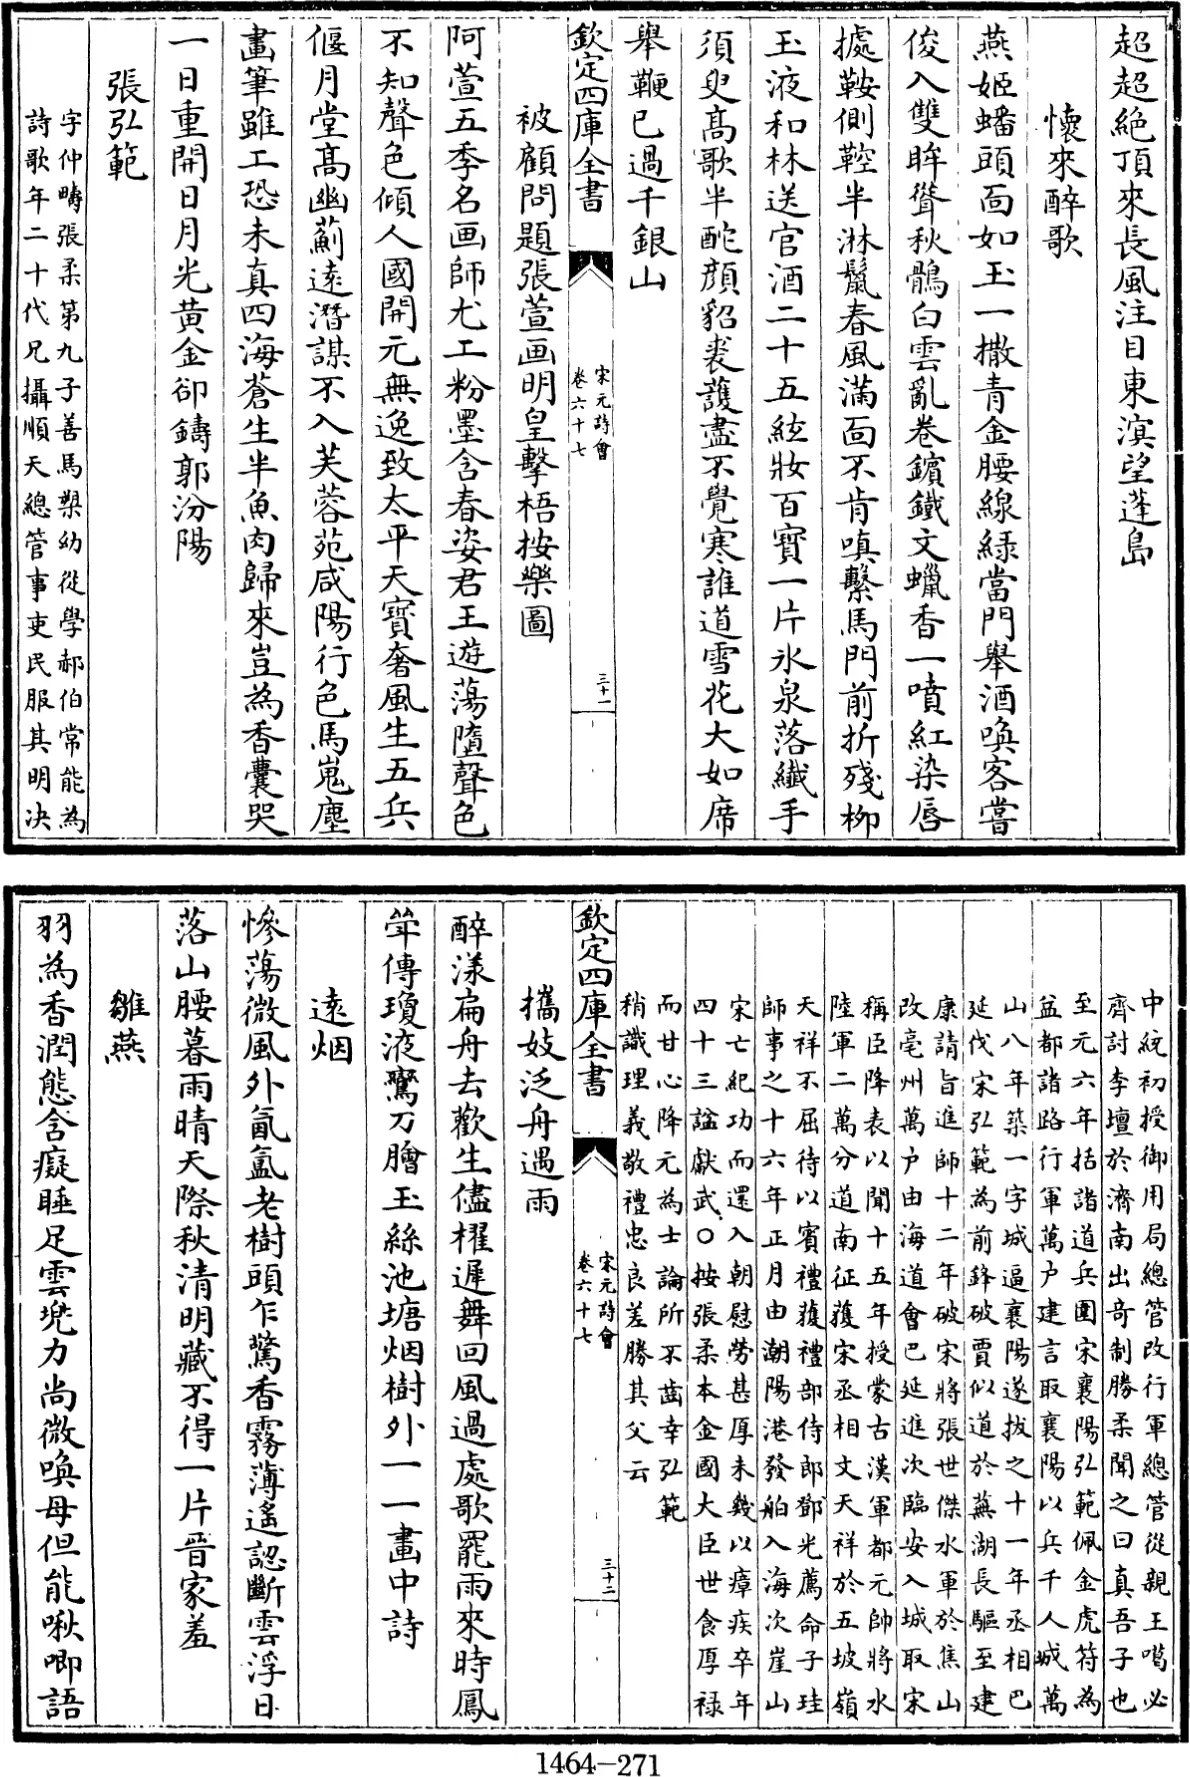 超超絶頂來長風注目東溟望蓬島
懷來醉歌
燕姬蟠頭面如玉一撒青金腰線緑當門舉酒喚客嘗
俊入雙眸聳秋鶻白雲亂卷鑌鐵文蠟香一噴紅染唇
據鞍側鞚半淋鬛春風滿面不肯嗔繫馬門前折殘栁
玉液和林送官酒二十五絃妝百寳一片氷泉落纎手
須臾髙歌半酡顔貂裘䕶盡不覺寒誰道雪花大如席
舉鞭已過千銀山
欽定四庫全書
宋元詩會
卷六十七
三十一
被顧問題張萱画明皇擊梧按樂圖
阿萱五季名画師尤工粉墨含春姿君王遊蕩墮聲色
不知聲色傾人國開元無逸致太平天寳奢風生五兵
偃月堂髙幽薊遠潛謀不入芙蓉苑咸陽行色馬嵬塵
畫筆雖工恐未真四海蒼生半魚肉歸來豈為香囊哭
一日重開日月光黄金卻鑄郭汾陽
張弘範
字仲疇張柔第九子善馬槊幼從學郝伯常能為
詩歌年二十代兄攝順天總管事吏民服其明决
中統初授御用局總管改行軍總管從親王噶必
齊討李璮於濟南出奇制勝柔聞之曰真吾子也
至元六年括諸道兵圍宋襄陽弘範佩金虎符為
益都諸路行軍萬户建言取襄陽以兵千人城萬
山八年築一字城逼襄陽遂拔之十一年丞相巴
延伐宋弘範為前鋒破賈似道於蕪湖長驅至建
康請旨進師十二年破宋將張世傑水軍於焦山
改亳州萬户由海道會巴延進次臨安入城取宋
稱臣降表以聞十五年授蒙古漢軍都元帥將水
陸軍二萬分道南征獲宋丞相文天祥於五坡嶺
天祥不屈待以賓禮獲禮部侍郎鄧光薦命子珪
師事之十六年正月由潮陽港發舶入海次崖山
宋亡紀功而還入朝慰勞甚厚未幾以瘴疾卒年
四十三諡獻武○按張柔本金國大臣世食厚禄
而甘心降元為士論所不齒幸弘範
稍識理義敬禮忠良差勝其父云
欽定四庫全書
宋元詩會
卷六十七
三十二
攜妓泛舟遇雨
醉漾扁舟去歡生儘櫂遲舞回風過處歌罷雨來時鳳
笙傳瓊液鸞刀膾玉絲池塘烟樹外一一畫中詩
遠烟
慘蕩微風外氤氲老樹頭乍驚香霧薄遙認斷雲浮日
落山腰暮雨晴天際秋清明藏不得一片晉家羞
雛燕
羽為香潤態含癡睡足雲㙮力尚微喚母但能啾唧語
1464—271